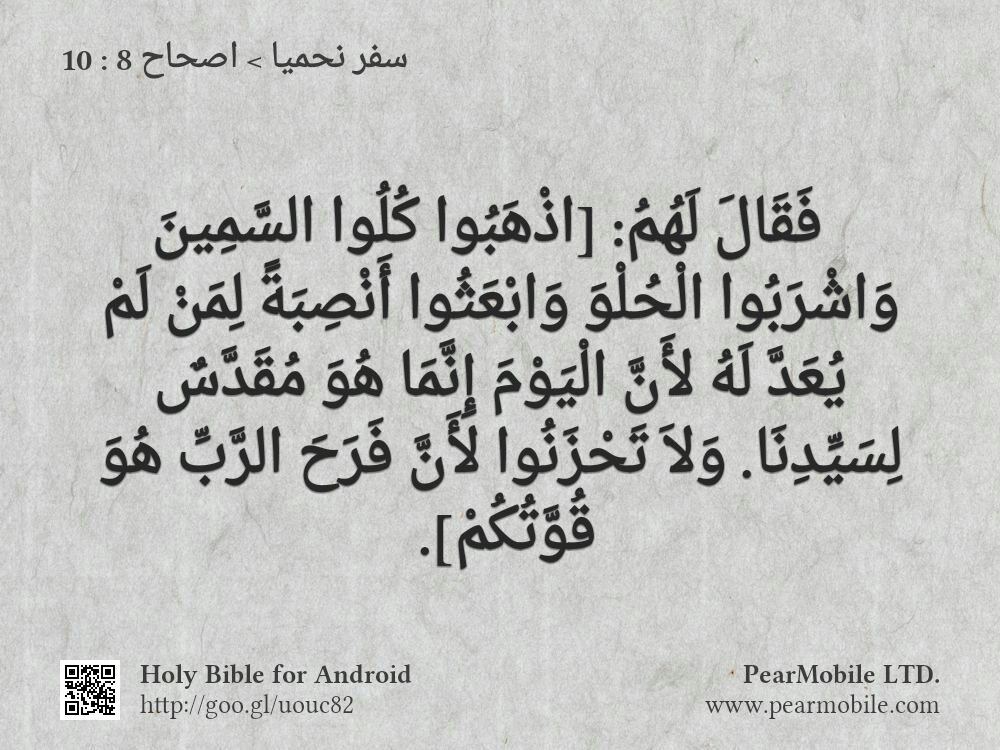 سفر نحميا > اصحاح 8 : 10
فَقَالَ لَهُمُ: [اذْهَبُوا كُلُوا السَّمِينَ
وَاشْرَبُوا الْحُلْوَ وَابْعَثُوا أَنْصِبَةً لِمَنْ لَمْ
يُعَدَّ لَهُ لأَنَّ الْيَوْمَ إِنَّمَا هُوَ مُقَدَّسٌ
لِسَيِّدِنَا. وَلاَ تَحْزَنُوا لأَنَّ فَرَحَ الرَّبِّ هُوَ
قُوَّتُكُمْ].
Holy Bible for Android
http://goo.gl/uouc82
PearMobile LTD.
www.pearmobile.com